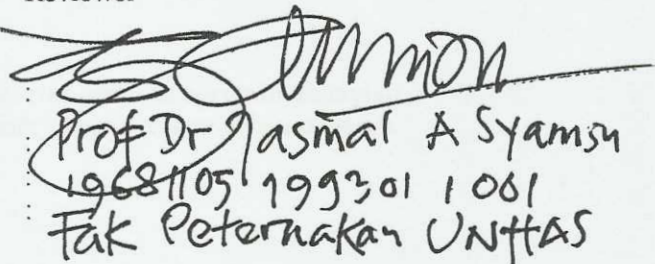 Prof Dr Jasmal A Syamsu
19681105 199301 1 001
Fak Peternakan UNHAS